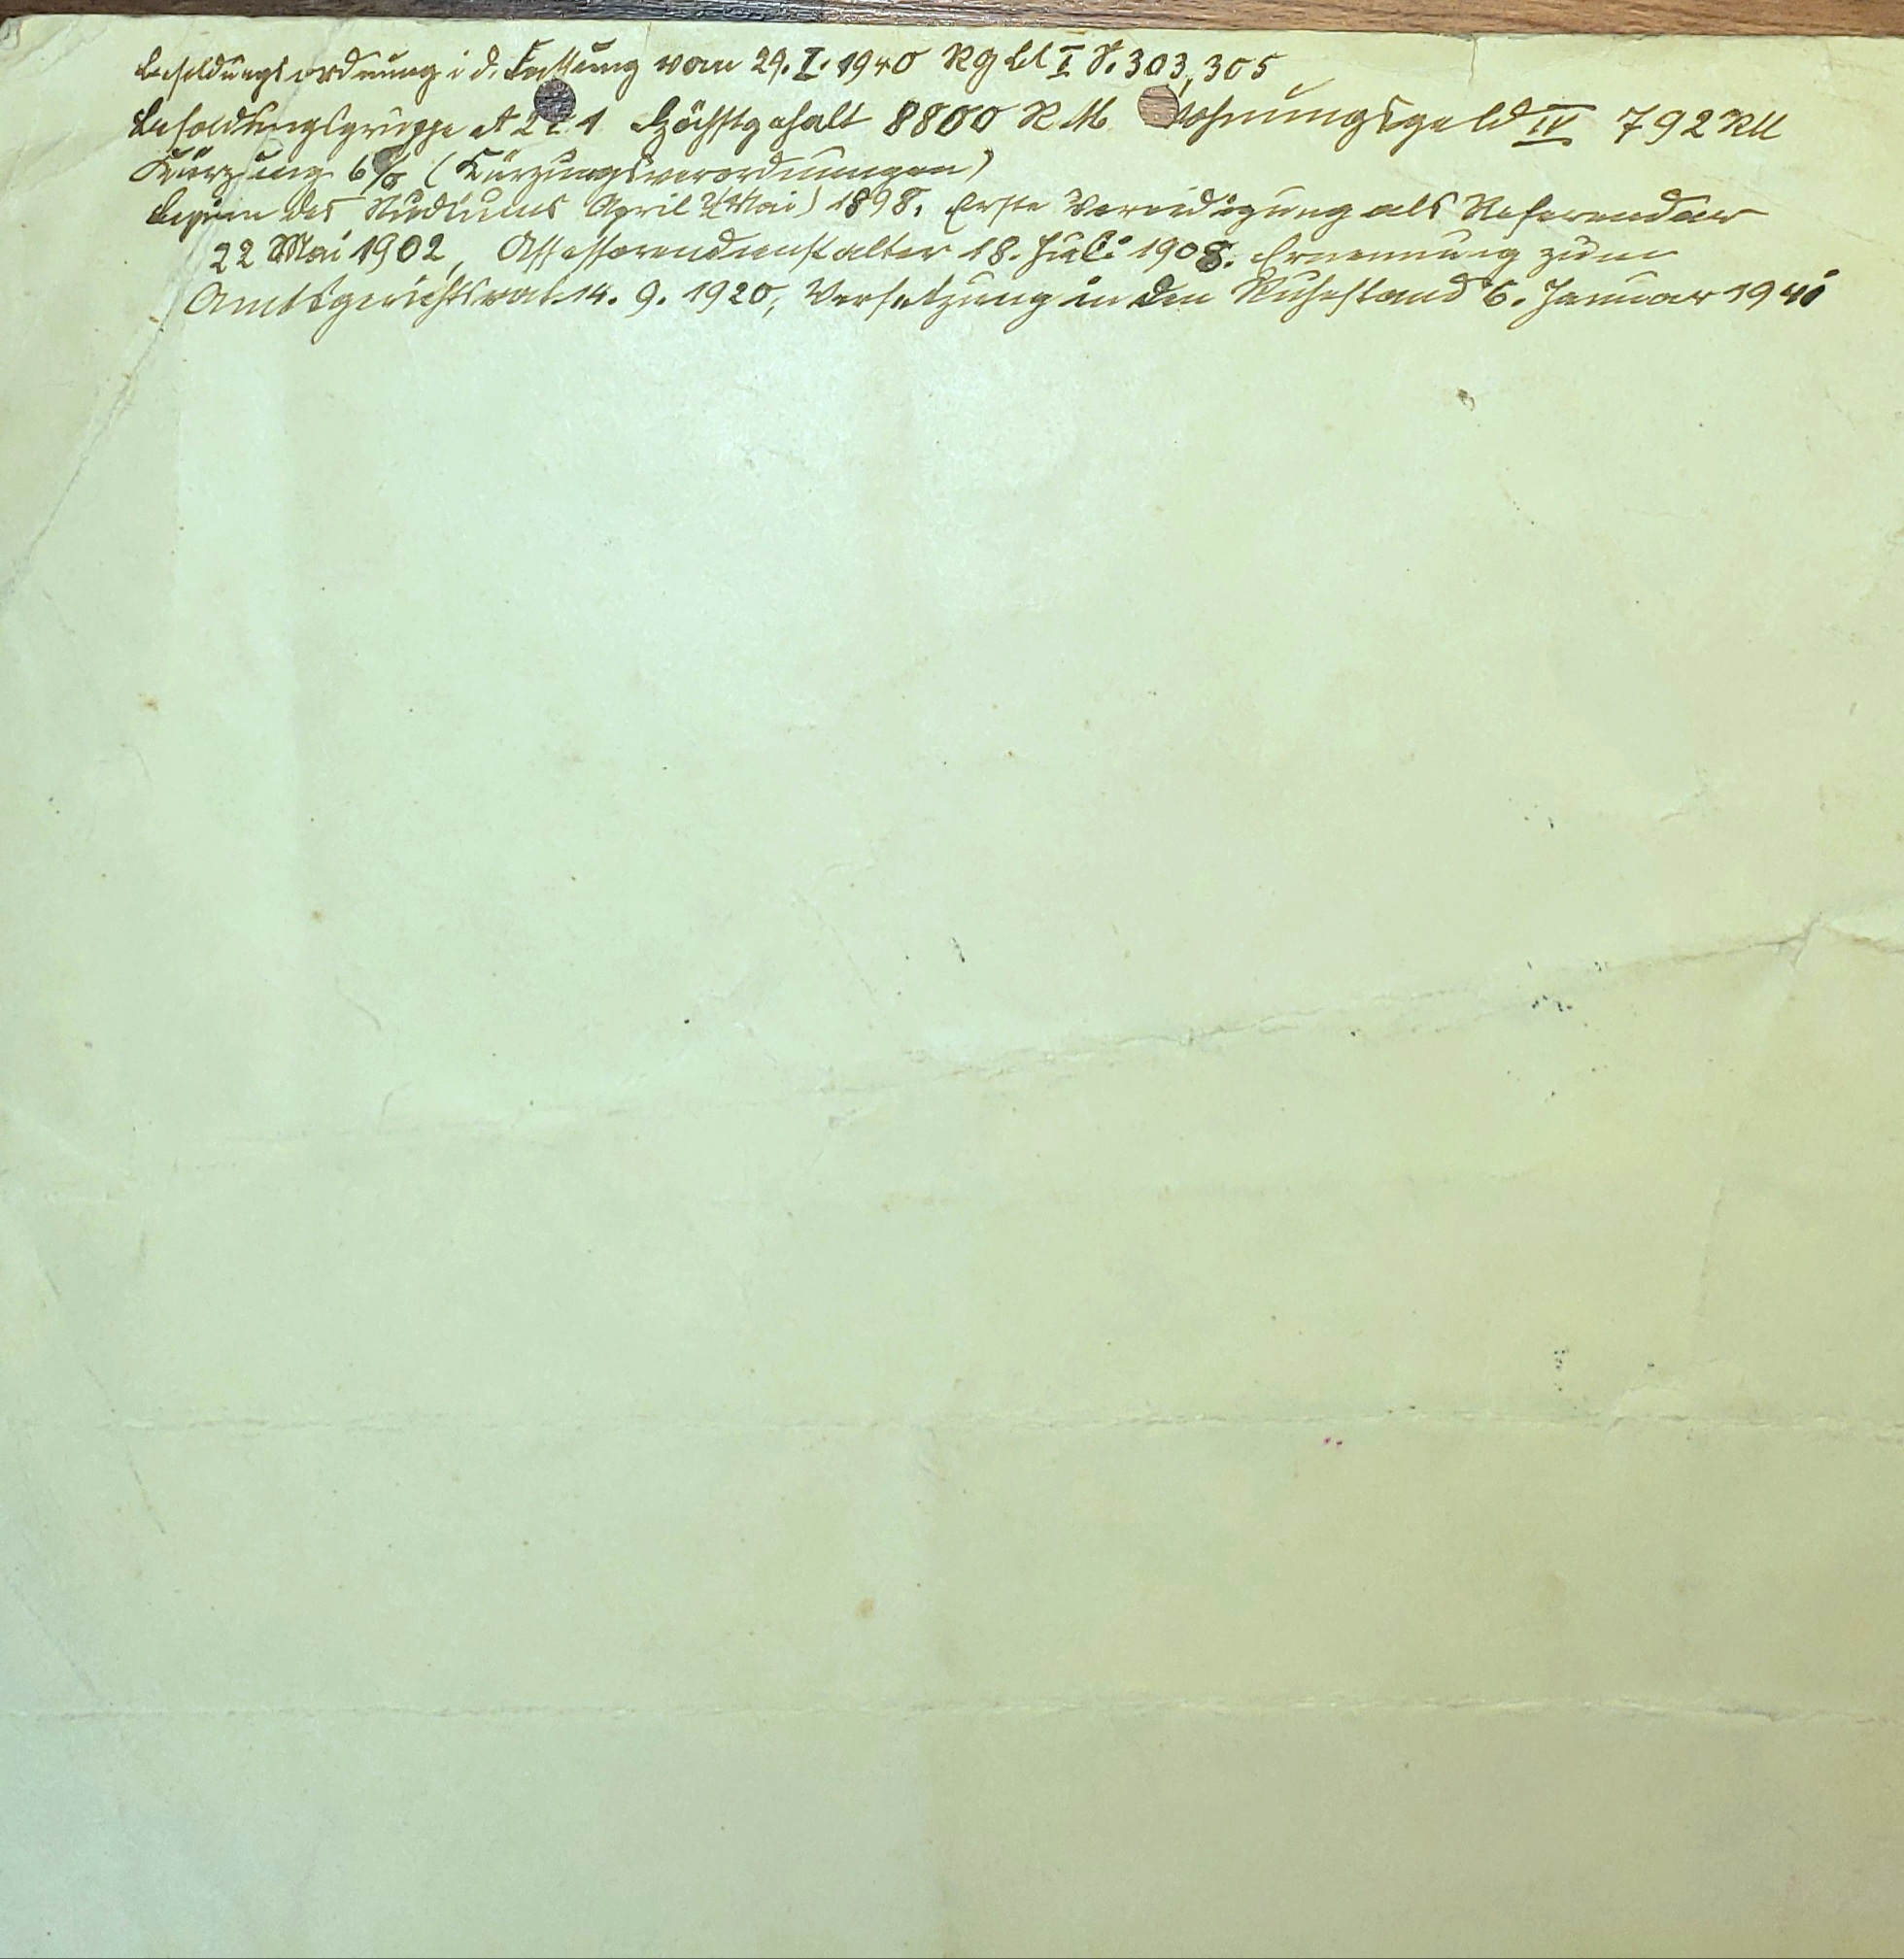 Besoldungsordnung i. d. Fassung vom 29. I. 1940 RGBl I S. 303, 305
Besoldungsgruppe A 2 c 1 Höchstgehalt 8800 RM Wohnungsgeld IV 792 RM
Kürzung 6% (Kürzungsverordnungen)
Beginn des Studiums April (Mai) 1898. Erste Vereidigung als Referendar
22 Mai 1902, Assessorendienstalter 18. Juli 1908. Ernennung zum
Amtsgerichtsrat 14. 9. 1920, Versetzung in den Ruhestand 6. Januar